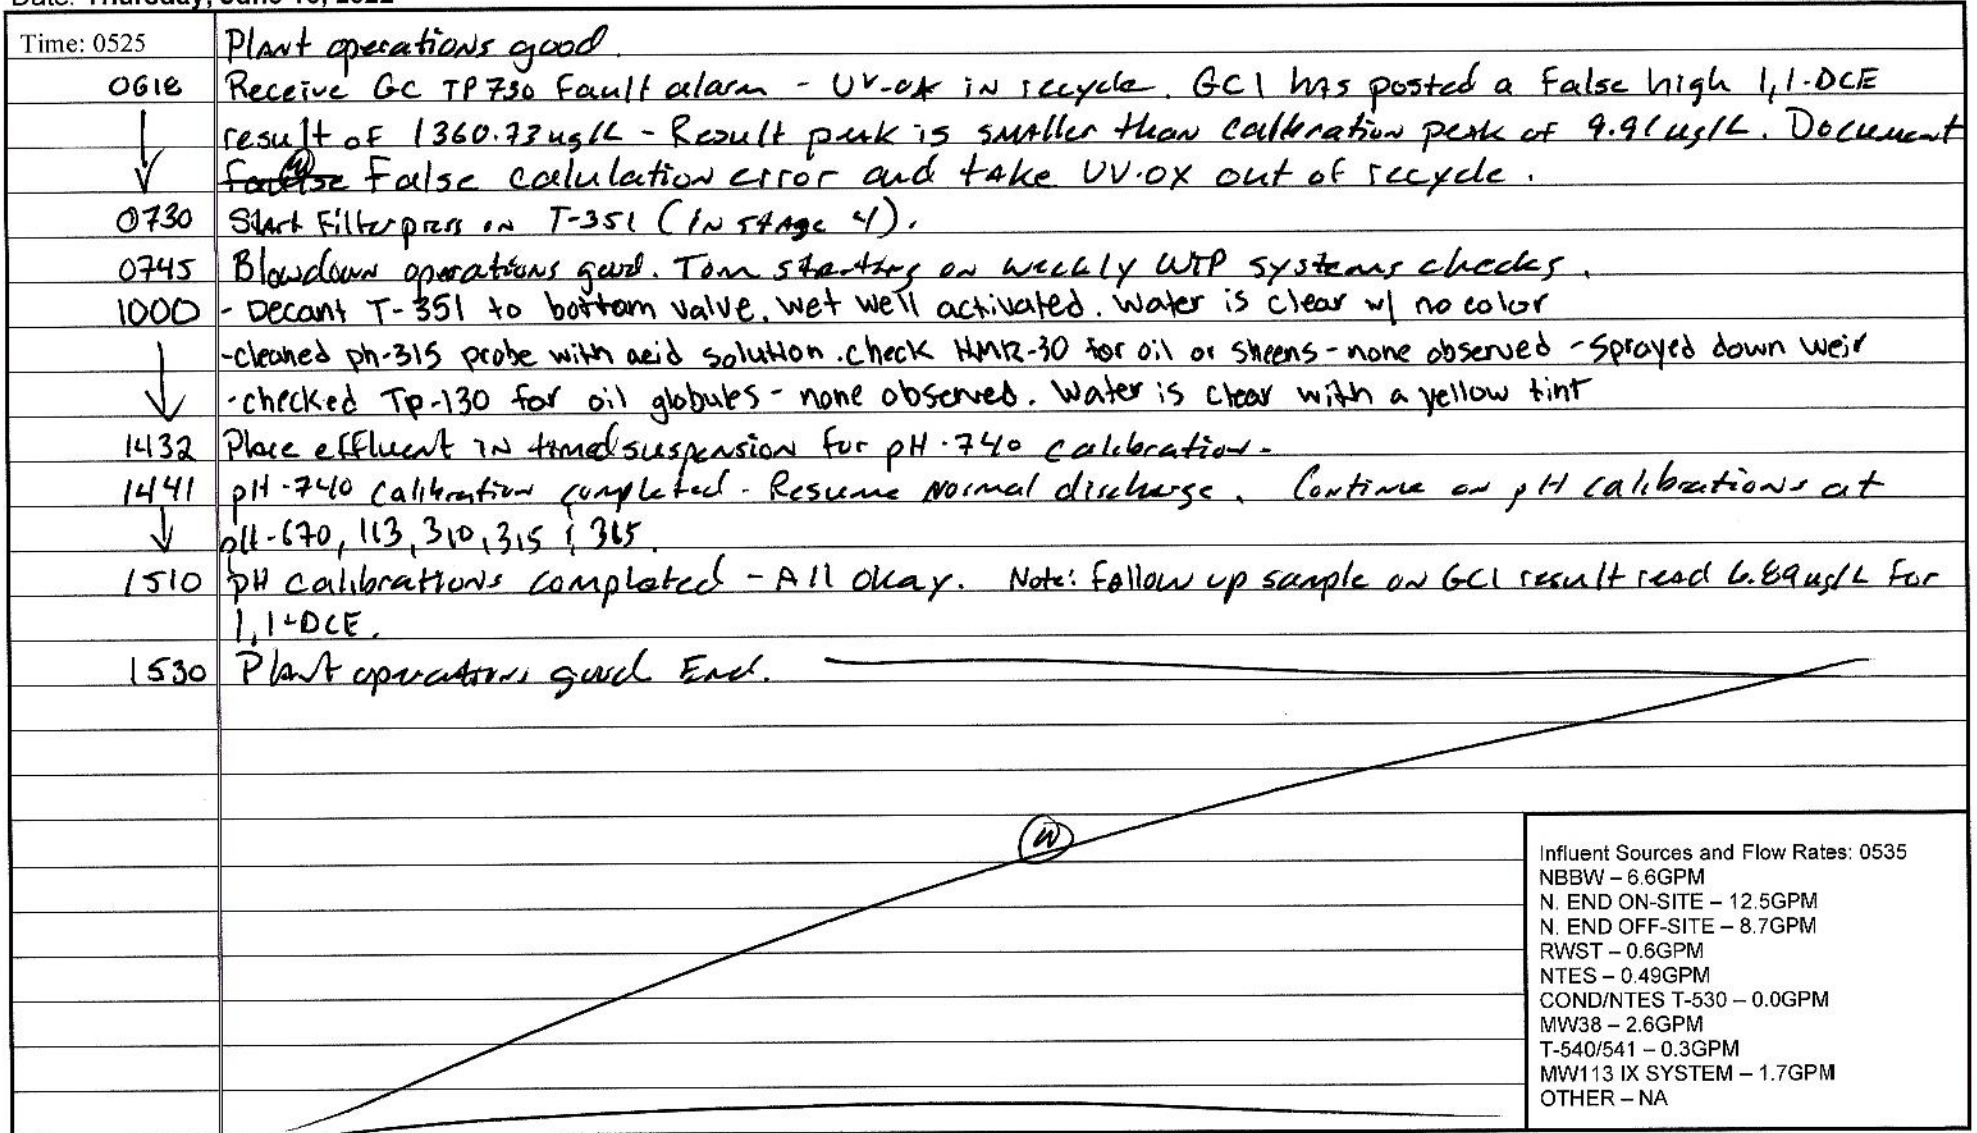 Date: Thursday, June 16, 2022
Time: 0525 Plant operations good.
0618 Receive GC TP730 Fault alarm - UV-ox in recycle. GC1 has posted a False high 1,1-DCE
result of 1360.73ug/L - Result peak is smaller than calibration peak of 9.91ug/L. Document
False calulation error and take UV-OX out of recycle.
0730 Start Filterpress on T-351 (in stage 4).
0745 Blowdown operations good. Tom starting on weekly WTP systems checks.
1000 - Decant T-351 to bottom valve. wet well activated. Water is clear w/ no color
-cleaned ph-315 probe with acid solution. check HMR-30 for oil or sheens - none observed - sprayed down weir
-checked Tp-130 for oil globules - none observed. Water is clear with a yellow tint
1432 Place effluent in timed suspension for pH-740 calibration.
1441 pH-740 calibration completed - Resume normal discharge. Continue on pH calibrations at
pH-670, 113, 310, 315 & 365.
1510 pH calibrations completed - All okay. Note: Follow up sample on GC1 result read 6.89ug/L for
1,1-DCE.
1530 Plant operations good End.
W
Influent Sources and Flow Rates: 0535
NBBW – 6.6GPM
N. END ON-SITE – 12.5GPM
N. END OFF-SITE – 8.7GPM
RWST – 0.6GPM
NTES – 0.49GPM
COND/NTES T-530 – 0.0GPM
MW38 – 2.6GPM
T-540/541 – 0.3GPM
MW113 IX SYSTEM – 1.7GPM
OTHER – NA